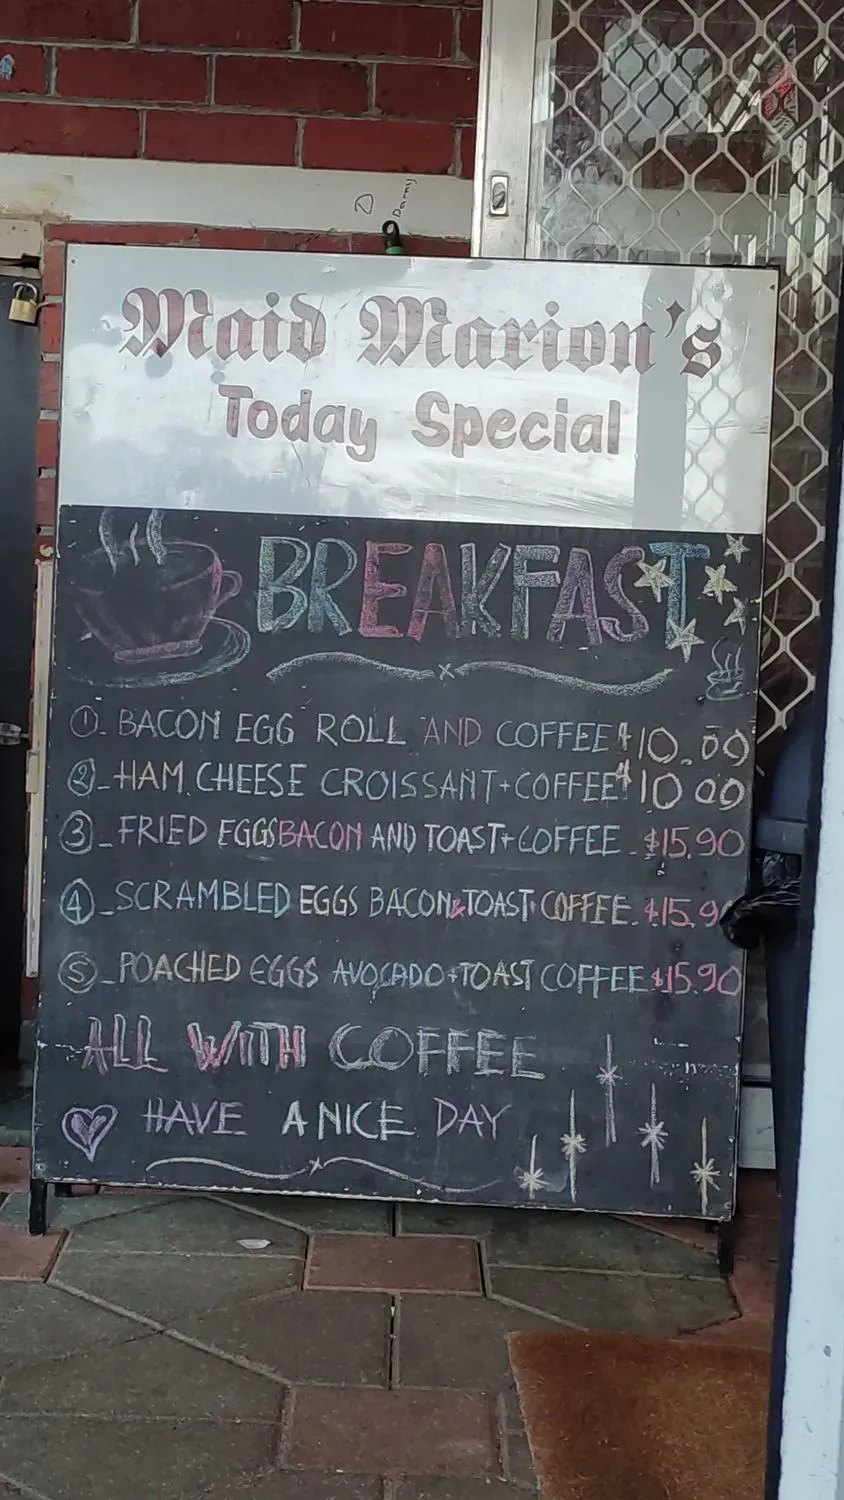 D
Danny
Maid Marion's
Today Special
BREAKFAST
1. BACON EGG ROLL AND COFFEE $10.00
2- HAM. CHEESE CROISSANT+COFFEE $10 00
3- FRIED EGGS BACON AND TOAST+COFFEE - $15.90
4- SCRAMBLED EGGS BACON & TOAST+COFFEE. $15.90
5- POACHED EGGS AVOCADO+TOAST COFFEE $15.90
ALL WITH COFFEE
HAVE A NICE DAY